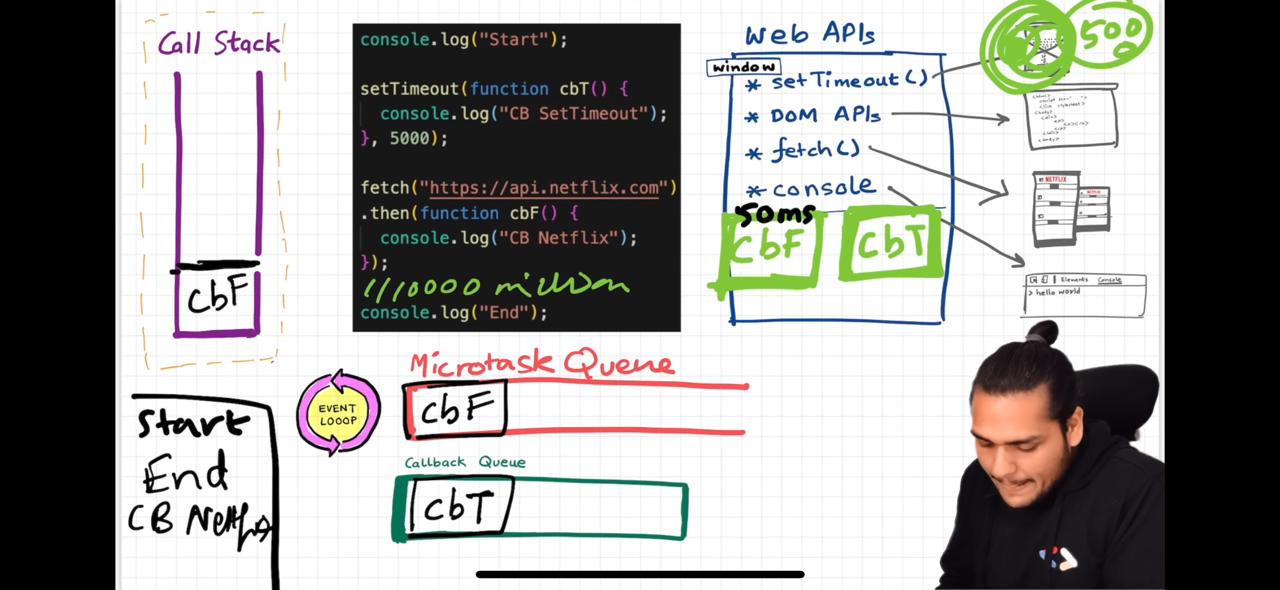 Call Stack
cbF
console.log("Start");
setTimeout(function cbT() {
console.log("CB SetTimeout");
}, 5000);
fetch("https://api.netflix.com")
.then(function cbF() {
console.log("CB Netflix");
});
console.log("End");
Web APIs
window
* setTimeout()
* DOM APIs
* fetch()
* console
50ms
cbF
cbT
500
NETFLIX
Elements Console
> hello world
EVENT
LOOOP
Microtask Queue
cbF
Callback Queue
cbT
Start
End